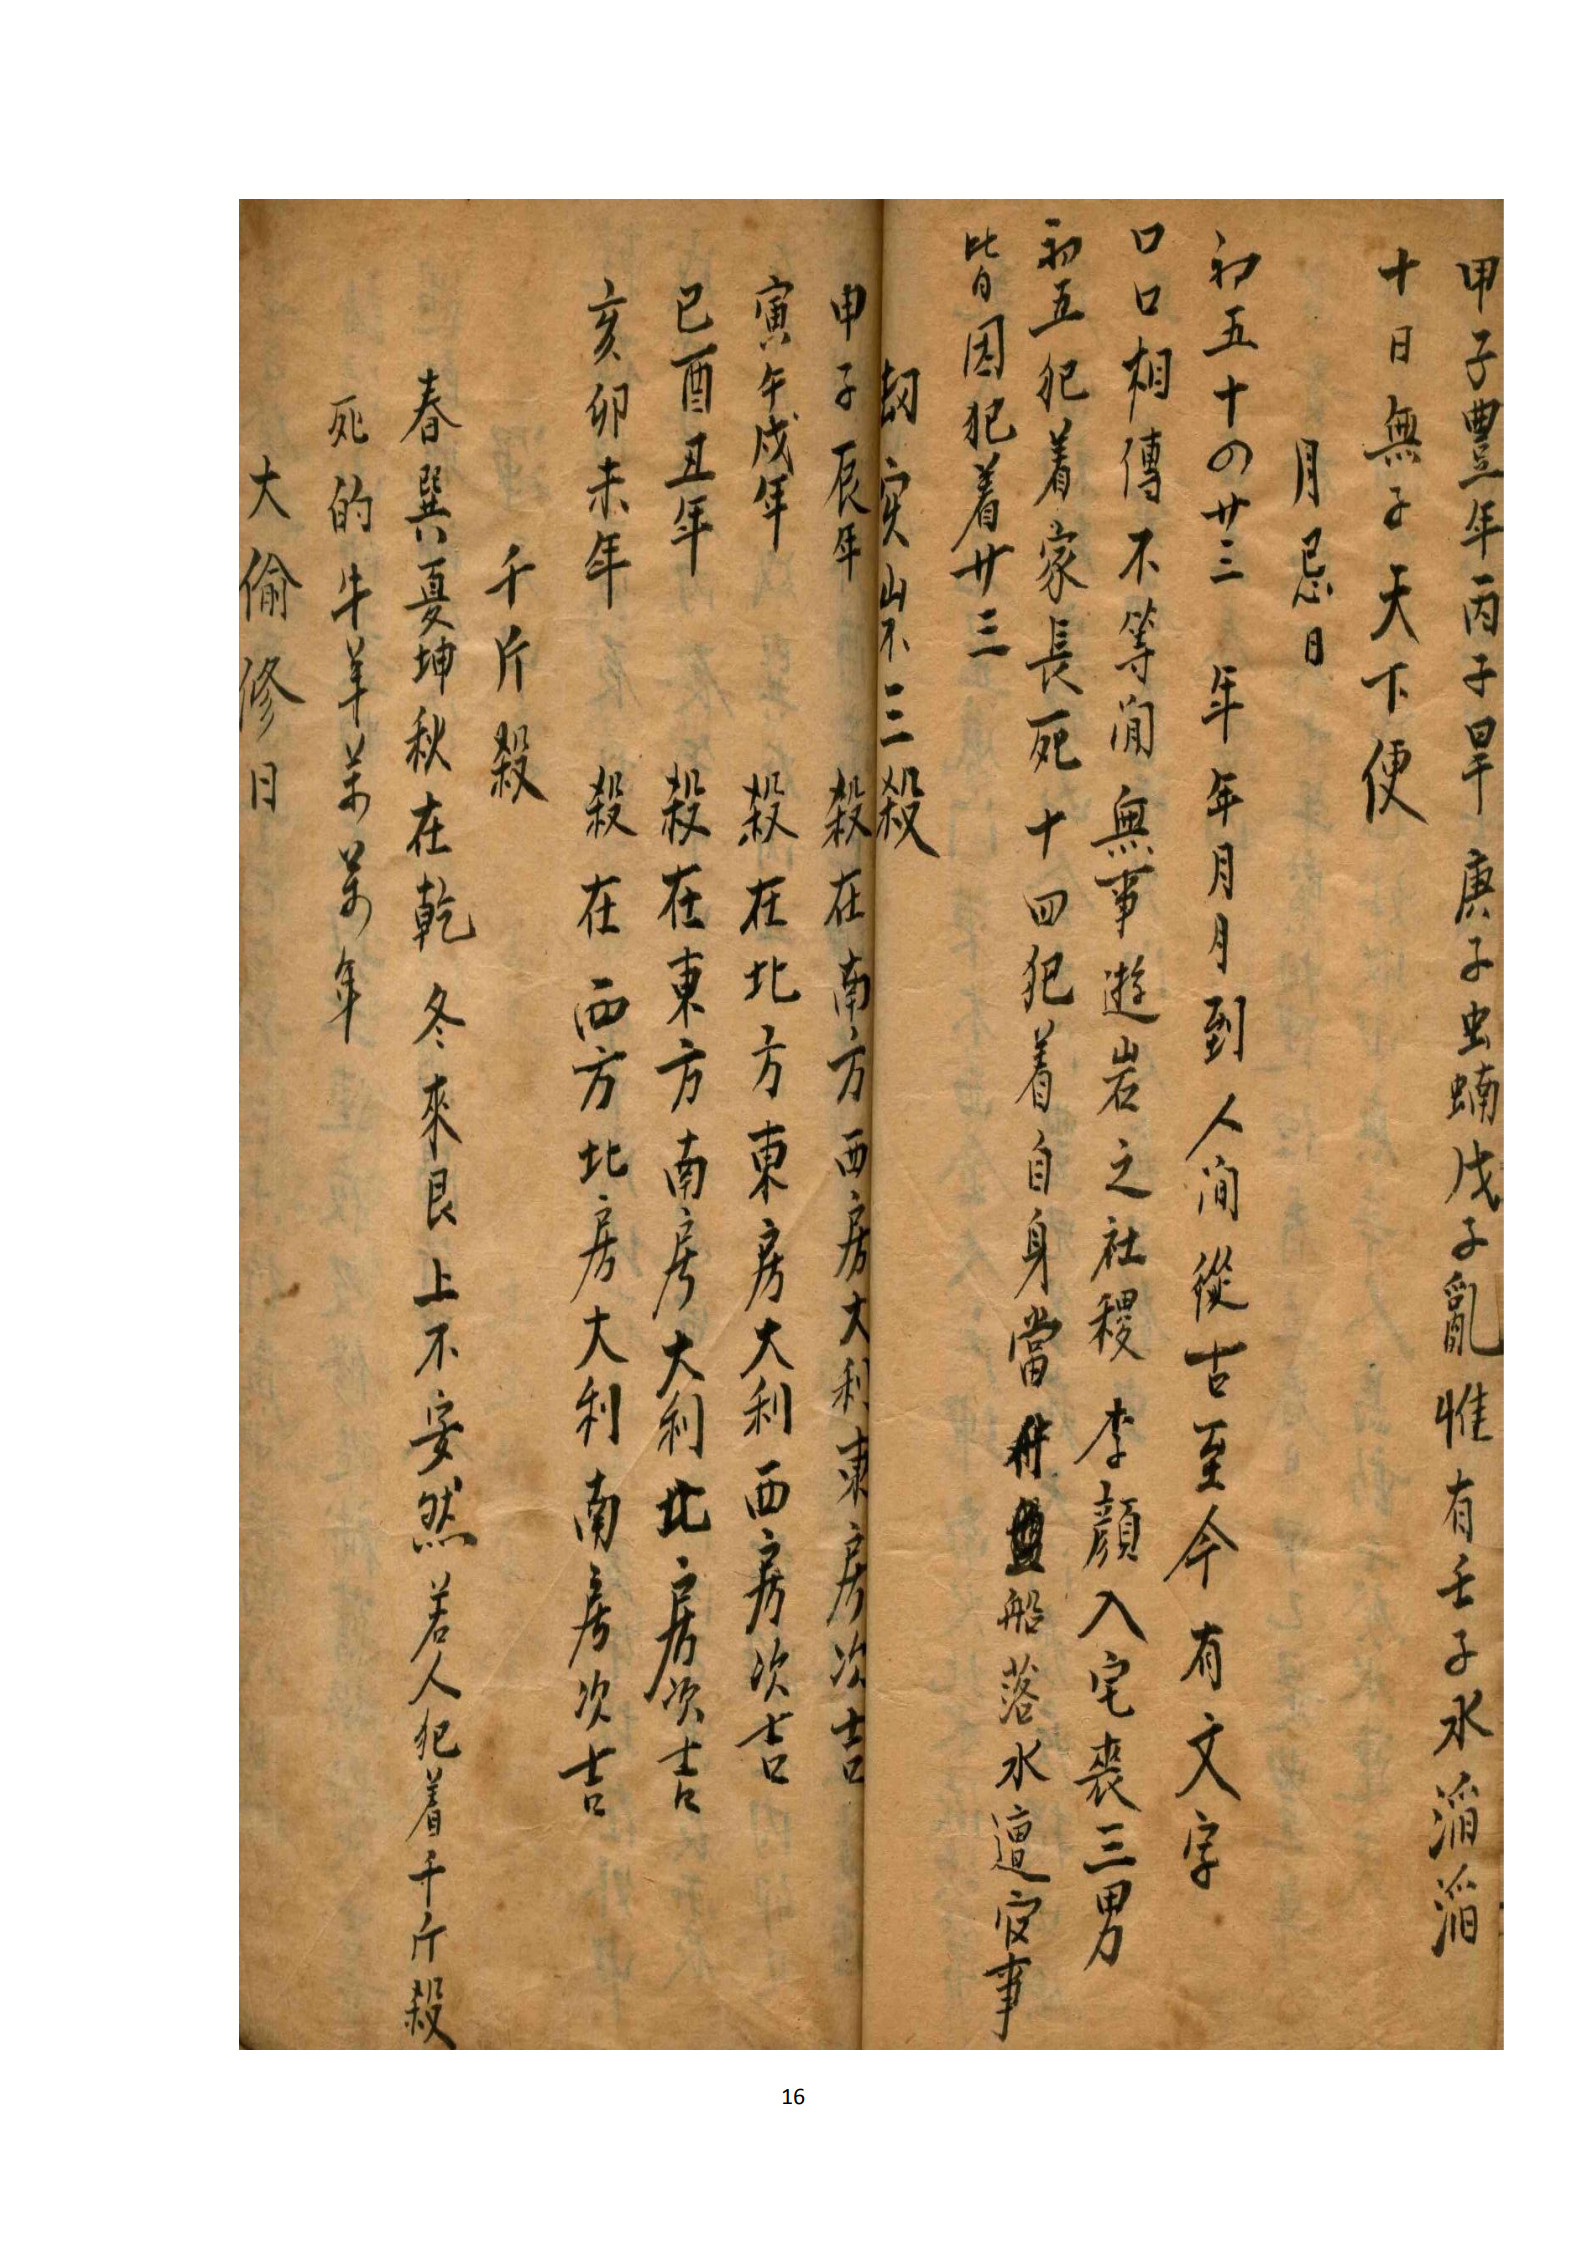 甲子豊年丙子旱庚子虫蝻戊子亂惟有壬子水滔滔
十日無子天下便
月忌日
初五十四廿三年年月月到人間從古至今有文字
口口相傳不等閒無事遊岩之社稷李顔入宅喪三男
初五犯着家長死十四犯着自身當船落水遭官事
皆因犯着廿三
劫灾岁三殺
申子辰年殺在南方西房大利東房次吉
寅午戌年殺在北方東房大利西房次吉
巳酉丑年殺在東方南房大利北房次吉
亥卯未年殺在西方北房大利南房次吉
千斤殺
春巽夏坤秋在乾冬來艮上不安然若人犯着千斤殺
死的牛羊萬萬年
大偷修日
16